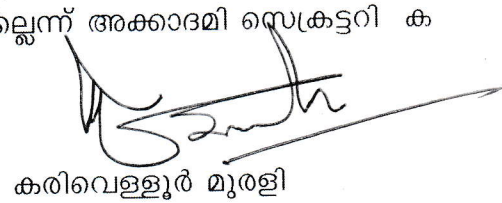 ല്ലെന്ന് അക്കാദമി സെക്രട്ടറി ക
കരിവെള്ളൂർ മുരളി